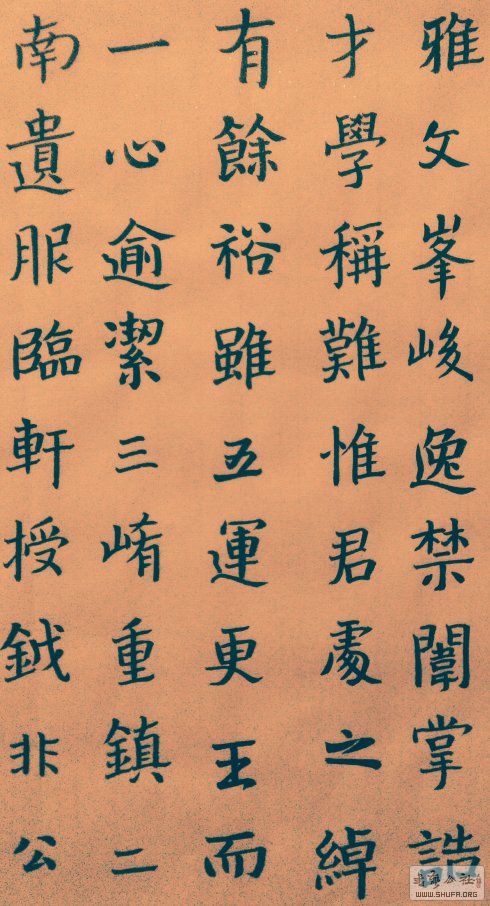 雅文峯峻逸禁闈掌誥
才學稱難惟君處之綽
有餘裕雖五運更王而
一心逾潔三崤重鎮二
南遺服臨軒授鉞非公
WWW.SHUFA.ORG